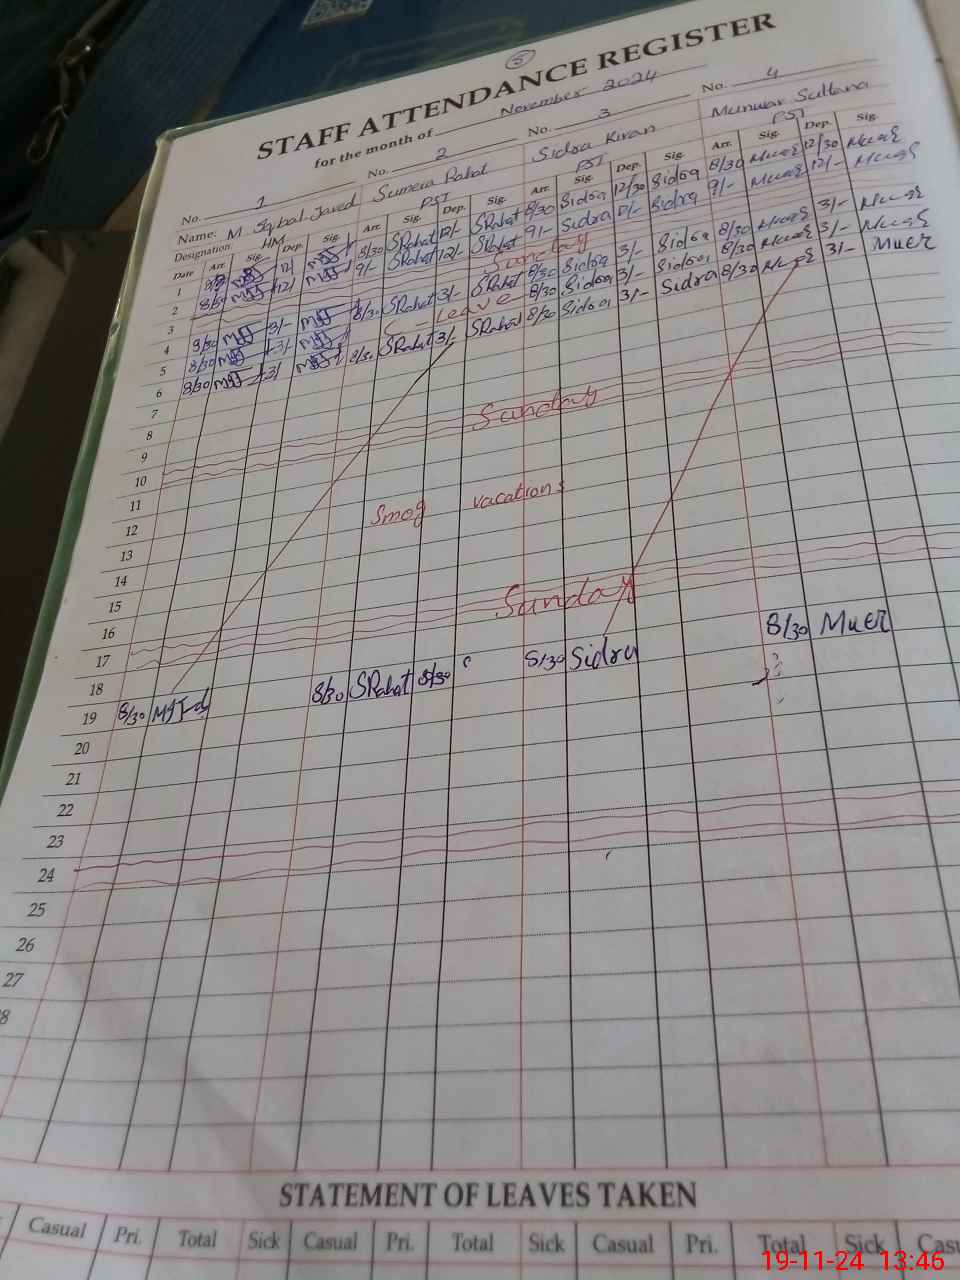 5
STAFF ATTENDANCE REGISTER
for the month of November 2024
No. 1 No. 2 No. 3 No. 4
Name: M. Iqbal Javed Sumera Rahat Sidra Kiran Munwar Sultana
Designation HM PST PST PST
Date Arr. Sig. Dep. Sig. Arr. Sig. Dep. Sig. Arr. Sig. Dep. Sig. Arr. Sig. Dep. Sig.
1 8/30 SRahat 12/- SRahat 8/30 Sidra 12/30 Sidra 8/30 12/30
2 8/30 12/ 9/- SRahat 12/- SRahat 9/- Sidra 12/- Sidra 9/- 12/-
3 Sunday
4 8/30 3/- 8/30 SRahat 3/- SRahat 8/30 Sidra 3/- Sidra 8/30 3/-
5 8/30 3/ Leave 8/30 Sidra 3/- Sidra 8/30 3/-
6 8/30 3/ 8/30 SRahat 3/- SRahat 8/30 Sidra 3/- Sidra 8/30 3/-
7
8
9
10 Sunday
11
12
13 Smog vacations
14
15
16
17 Sunday
18
19 8/30 8/30 SRahat 8/30 8/30 Sidra 8/30
20
21
22
23
24
25
26
27
8
STATEMENT OF LEAVES TAKEN
Casual Pri. Total Sick Casual Pri. Total Sick Casual Pri. Total Sick Cas
19-11-24 13:46